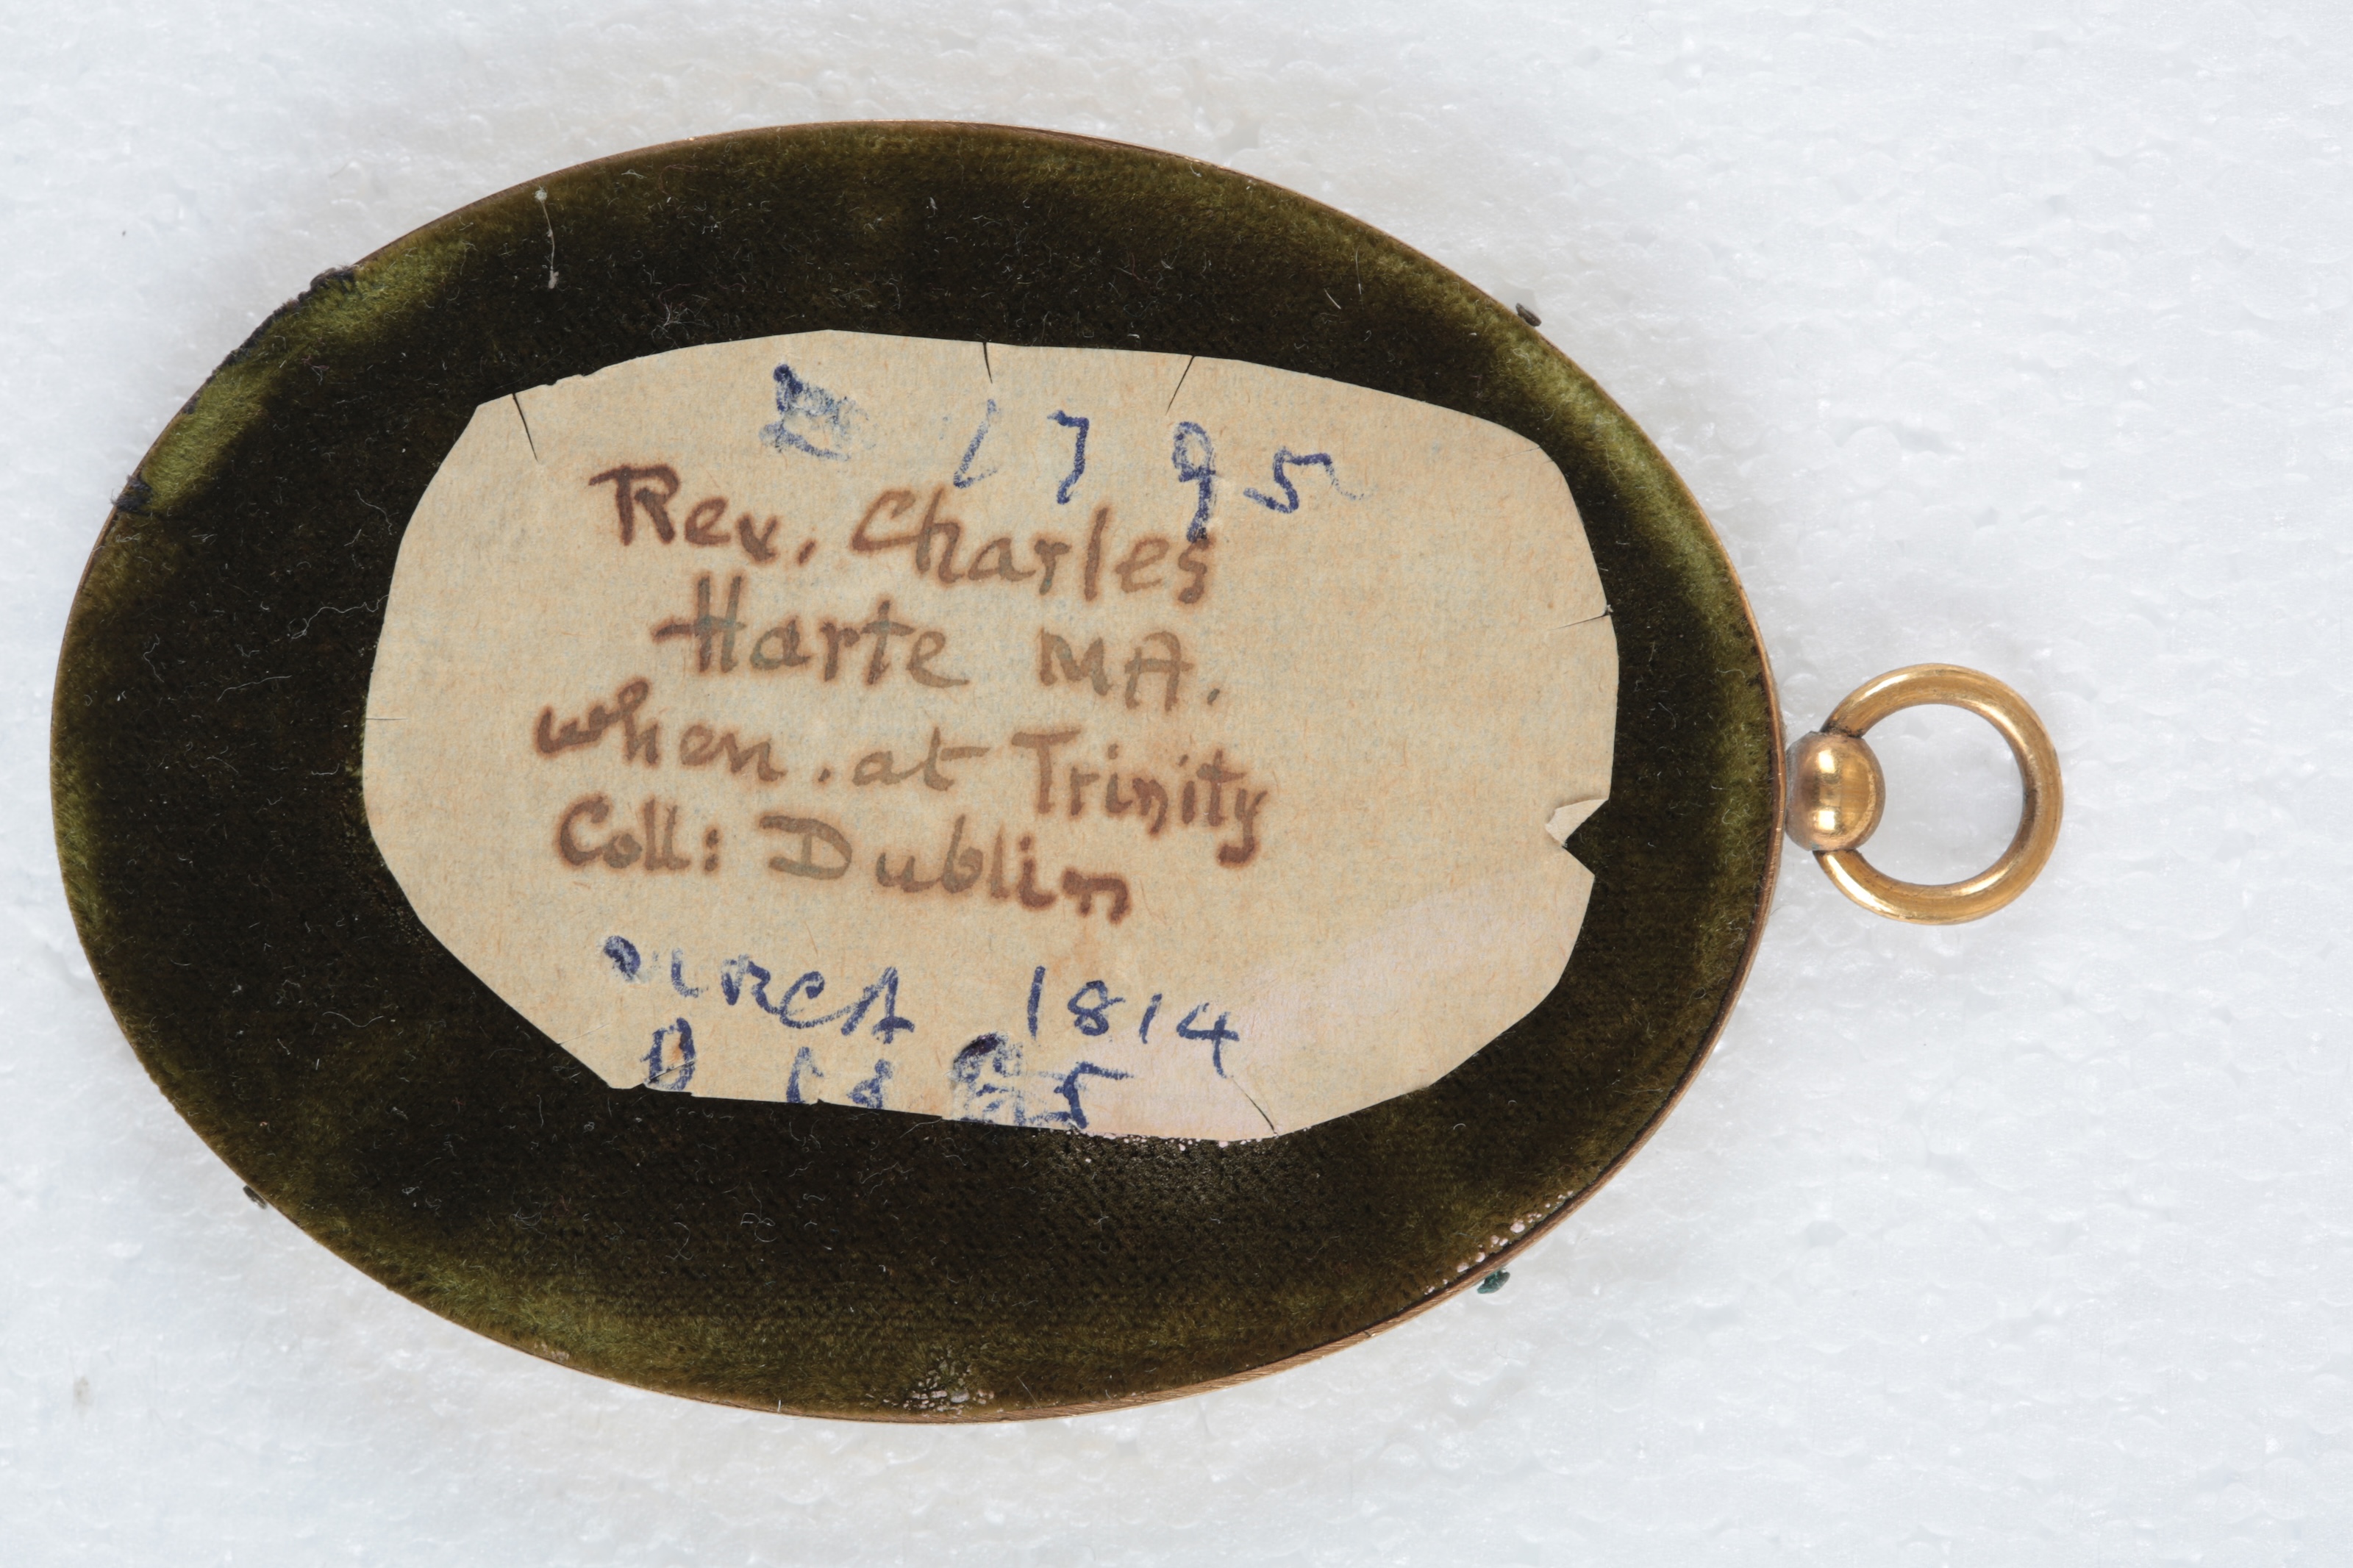 B 1795
Rev. Charles
Harte MA.
when . at Trinity
Coll: Dublin
CIRCA 1814
D